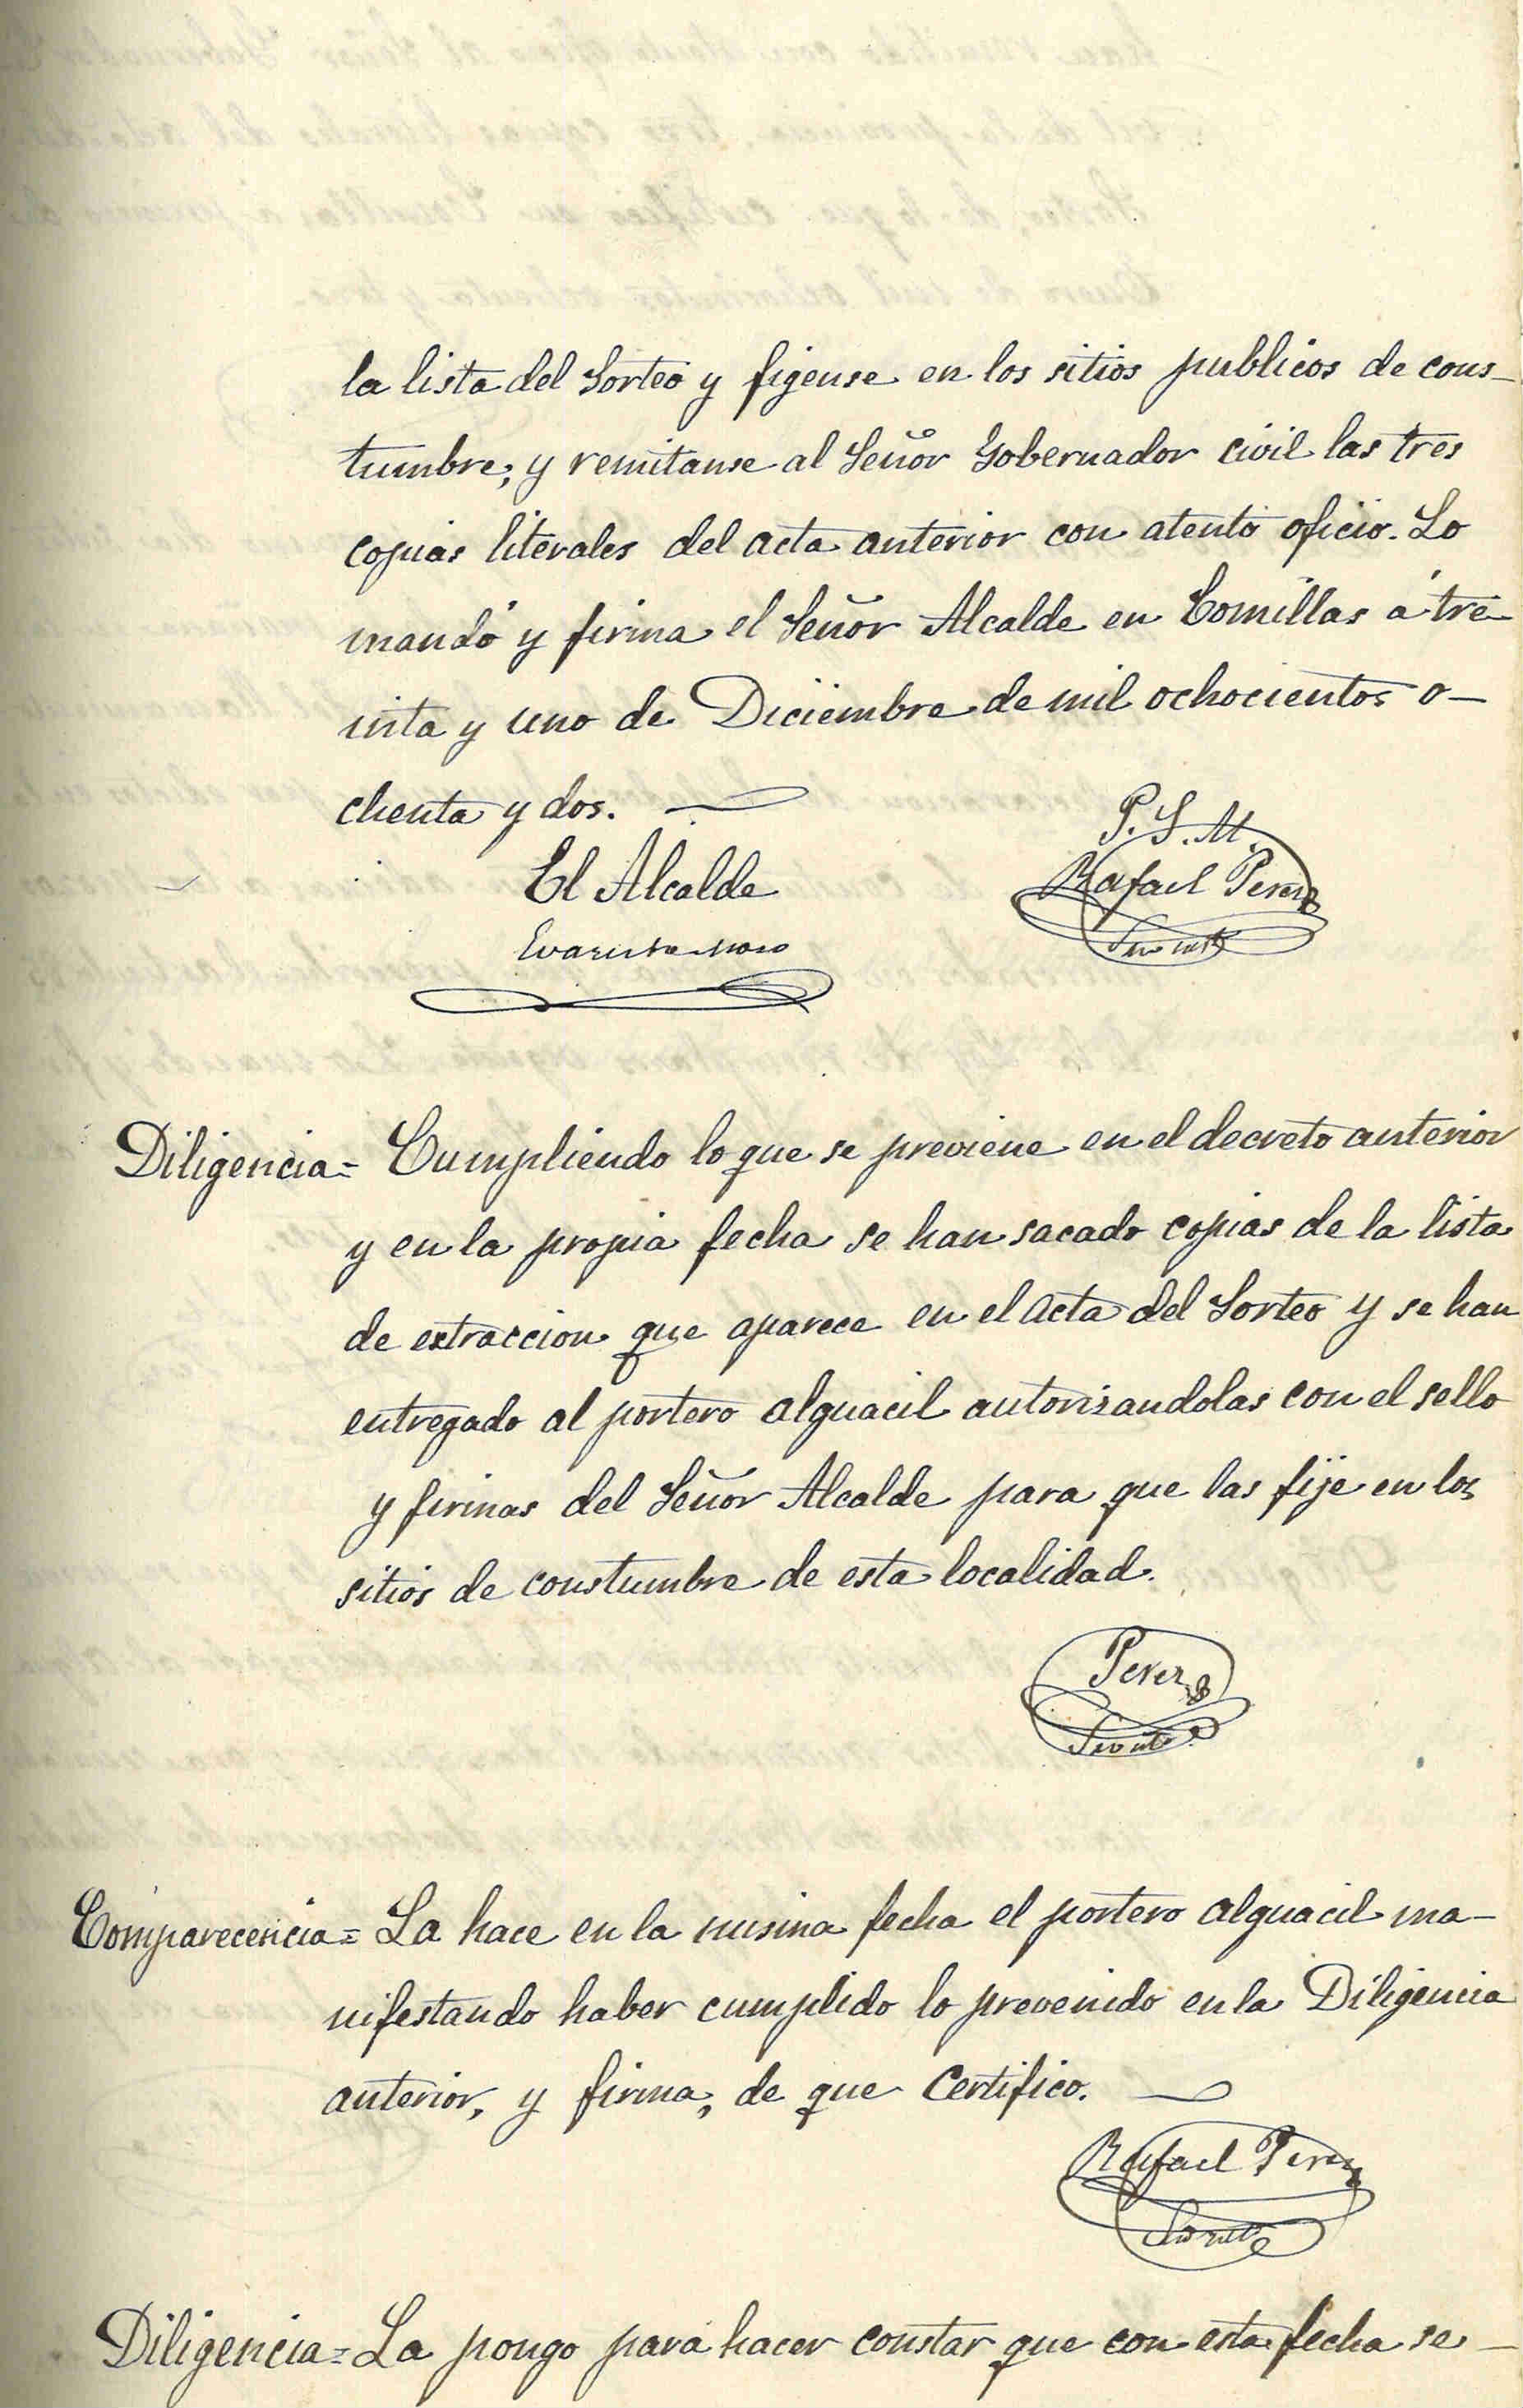 la lista del Sorteo y figense en los sitios publicos de cons-
tumbre, y remitanse al Señor Gobernador civil las tres
copias literales del acta anterior con atento oficio. Lo
mandó y firma el Señor Alcalde en Comillas á tre-
inta y uno de Diciembre de mil ochocientos o-
chenta y dos.
P. S. M.
El Alcalde
Rafael Perez
Diligencia = Cumpliendo lo que se previene en el decreto anterior
y en la propia fecha se han sacado copias de la lista
de extraccion que aparece en el acta del Sorteo y se han
entregado al portero alguacil autorizandolas con el sello
y firmas del Señor Alcalde para que las fije en los
sitios de constumbre de esta localidad.
Perez
Comparecencia = La hace en la misma fecha el portero alguacil ma-
nifestando haber cumplido lo prevenido en la Diligencia
anterior, y firma, de que certifico.
Rafael Perez
Diligencia = La pongo para hacer constar que con esta fecha se -